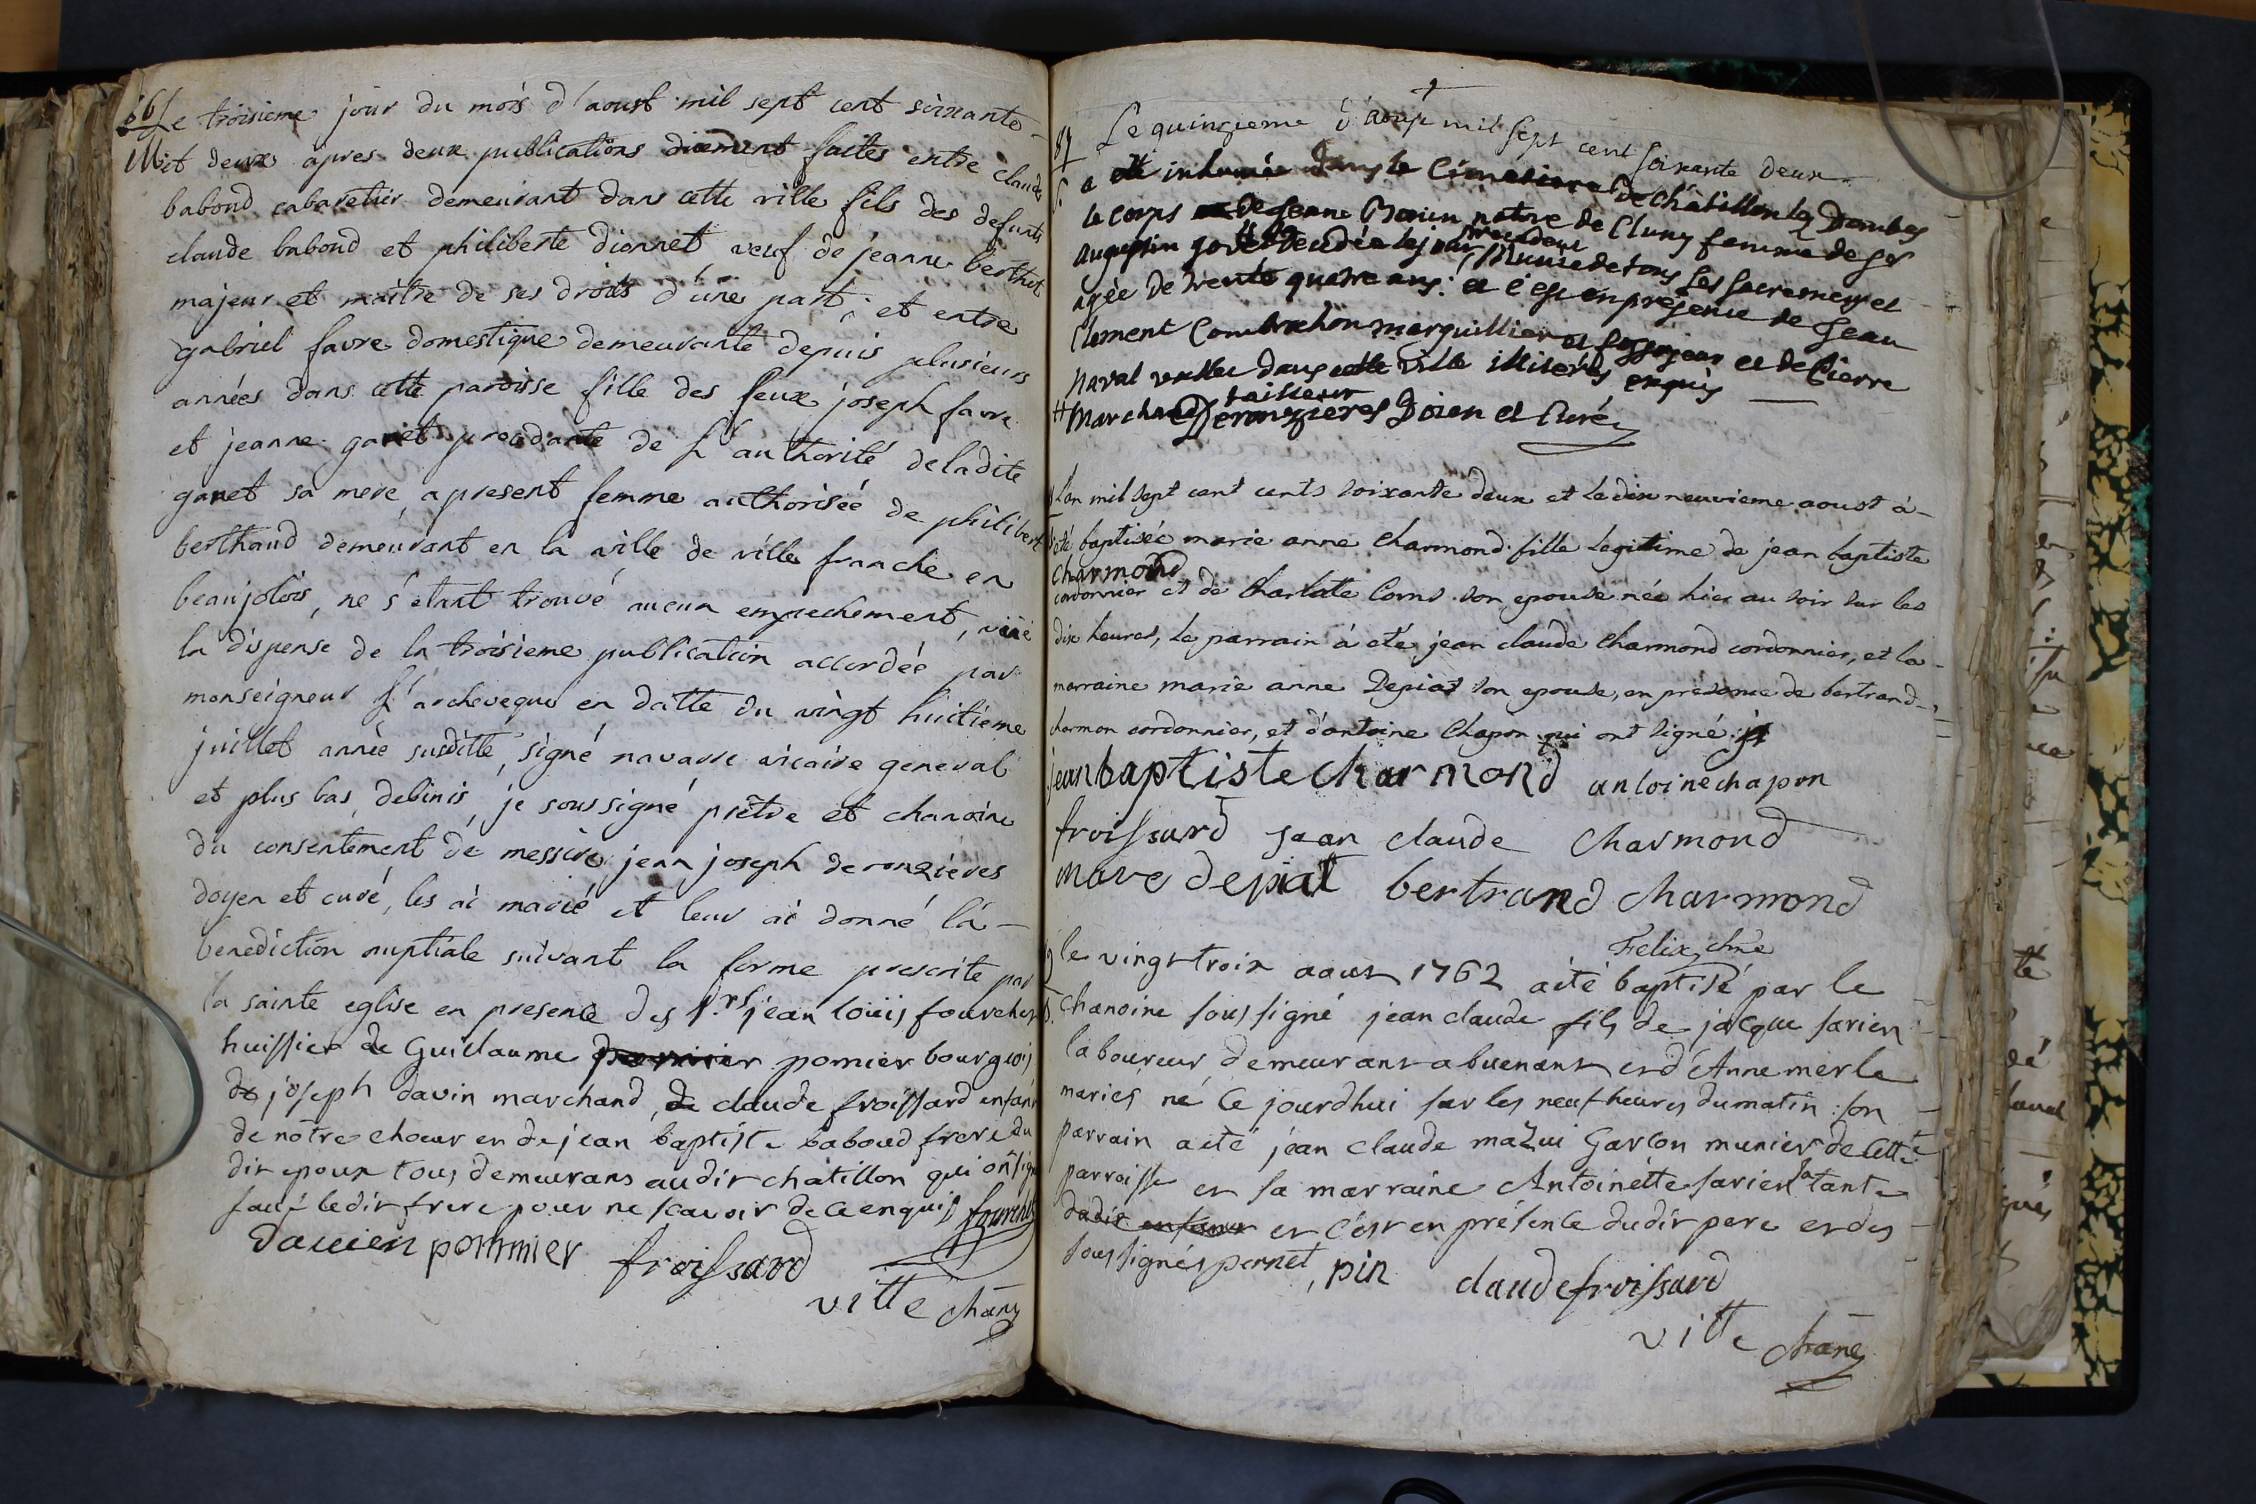 86 Le troisieme jour du mois d'aoust mil sept cent soixante
Mit deux apres deux publications duement faites entre claude
babond cabaretier demeurant dans cette ville fils des defunts
claude babond et philiberte dionnet, veuf de jeanne berthet
majeur et maitre de ses droits d'une part, et entre
gabriel favre domestique demeurante depuis plusieurs
années dans cette paroisse fille des feux joseph favre
et jeanne ganet procedante de l'authorité deladite
ganet sa mere, apresent femme authorisée de philibert
berthaud demeurant en la ville de ville franche en
beaujolois, ne s'étant trouvé aucun empechement, vüe
la dispense de la troisieme publication accordée par
monseigneur l'archeveque en datte du vingt huitieme
juillet année susditte, signé navarre vicaire general
et plus bas, debinis, je soussigné prêtre et chanoine
du consentement de messire jean joseph deronzieres
doyen et curé, les ai marié et leur ai donné la
benediction nuptiale suivant la forme prescrite par
la sainte eglise en presence des srs jean loüis fourchet
huissier de Guillaume pomier bourgeois
de joseph davin marchand, de claude froissard enfant
de nôtre choeur en de jean baptiste baboud frere du
dit epoux tous demeurans audit chatillon qui ont signé
sauf ledit frere pour ne scavoir de ce enquis fourchet
davien pommier froissard
vitte chane
†
87 Le quinzieme d'aoust mil sept cent soixante deux
S. a été inhumée dans le Cimetiere de Châtillon les Dombes
le corps de Jeanne native de Cluny femme de sr
augustin decedée le jour precedent munie de tous les sacremens et
agée de trente quatre ans. et c'est en presence de Jean
Clement marguillier et fossojeur et de Pierre
naval vallet dans cette ville illiterés enquis
# Marchand tailleur Deronzieres Doien et Curé
L'an mil sept cent cents soixante deux et le dix neuvieme aoust à
été baptisée marie anne Charmond fille legitime de jean baptiste
Charmond
cordonnier et de Charlotte Corns son epouse née hier au soir sur les
dix heures, le parrain à eté jean claude Charmond cordonnier, et la
marraine marie anne Depiat son epouse, en présence de bertrand
charmon cordonnier, et d'antoine Chapon qui ont signé
jean baptiste charmond antoine chapon
froissard jean claude Charmond
mare depiat bertrand charmond
Felix, chne
le vingt trois aoust 1762 a été baptisé par le
chanoine sous signé jean claude fils de jacque sarien
laboureur demeurant a buenant et d'Anne merle
mariés né ce jourdhui sur les neuf heures du matin : son
parrain a été jean claude mazui Garçon munier de cette
parroisse et sa marraine Antoinette sarien sa tante
dudit enfant et c'est en présence dudit pere et des
sous signés pernet, pin claude froissard
vitte chane